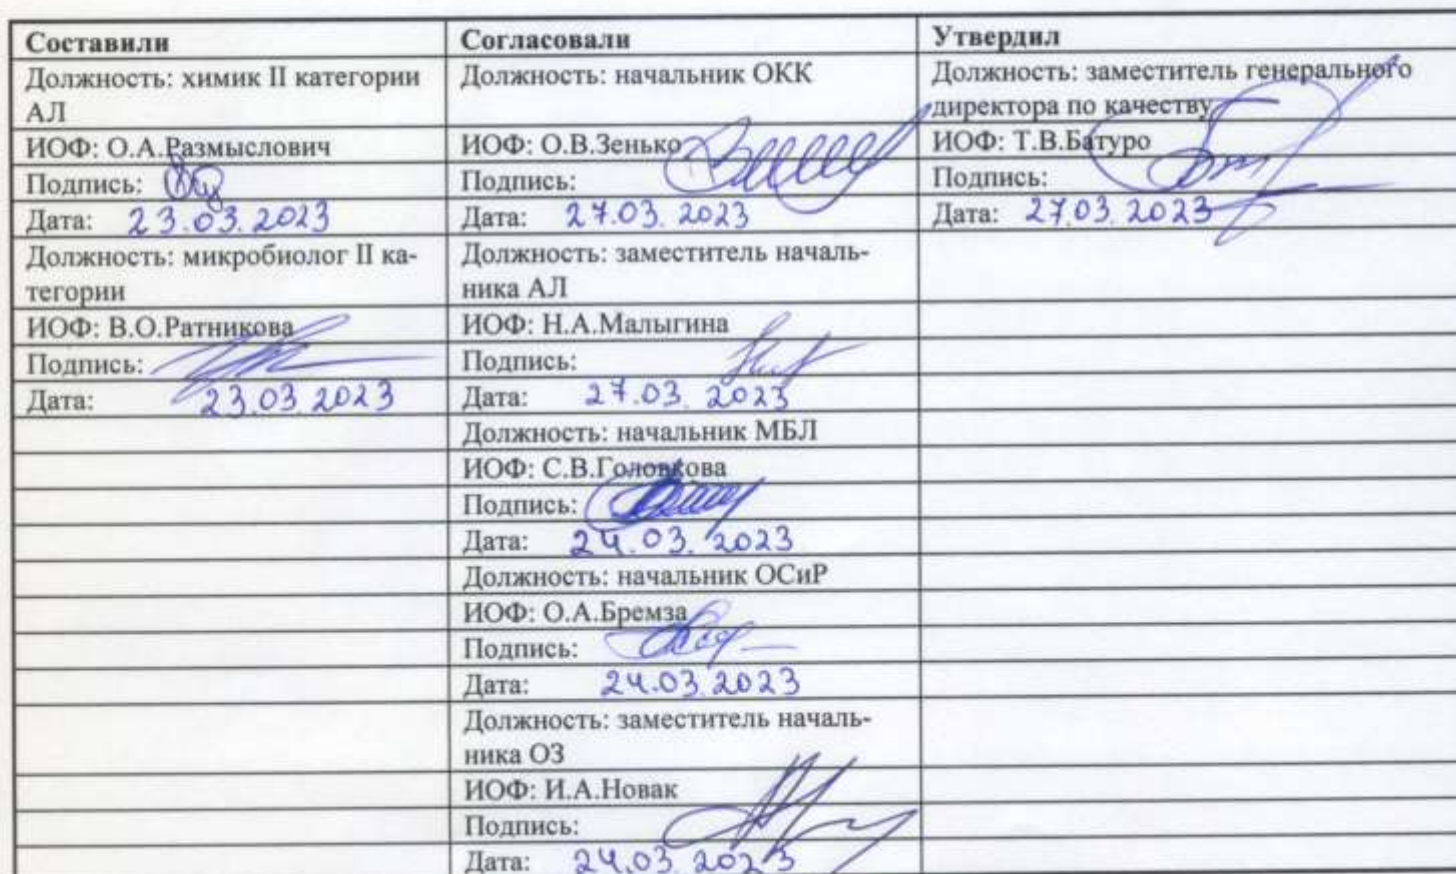 Составили
Согласовали
Утвердил
Должность: химик II категории
АЛ
Должность: начальник ОКК
Должность: заместитель генерального
директора по качеству
ИОФ: О.А.Размыслович
ИОФ: О.В.Зенько
ИОФ: Т.В.Батуро
Подпись:
Подпись:
Подпись:
Дата: 23.03.2023
Дата: 27.03.2023
Дата: 27.03.2023
Должность: микробиолог II ка-
тегории
Должность: заместитель началь-
ника АЛ
ИОФ: В.О.Ратникова
ИОФ: Н.А.Малыгина
Подпись:
Подпись:
Дата: 23.03.2023
Дата: 27.03.2023
Должность: начальник МБЛ
ИОФ: С.В.Головкова
Подпись:
Дата: 24.03.2023
Должность: начальник ОСиР
ИОФ: О.А.Бремза
Подпись:
Дата: 24.03.2023
Должность: заместитель началь-
ника ОЗ
ИОФ: И.А.Новак
Подпись:
Дата: 24.03.2023